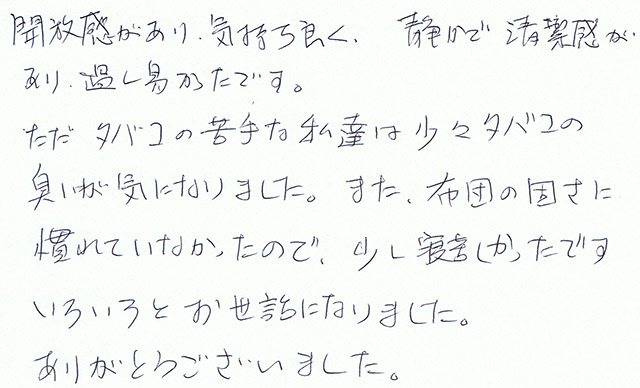 開放感があり、気持ち良く、静かで清潔感が
あり、過し易かたです。
ただタバコの苦手な私達は少々タバコの
臭いが気になりました。また、布団の固さに
慣れていなかったので、少し寝苦しかったです
いろいろとお世話になりました。
ありがとうございました。